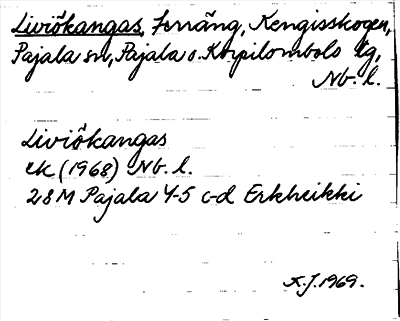 Liviökangas, terräng, Kengisskogen,
Pajala sn, Pajala o. Korpilombolo tg,
Nb. l.
Liviökangas
ek (1968) Nb. l.
28M Pajala 4-5 c-d Erkheikki
K.J. 1969.